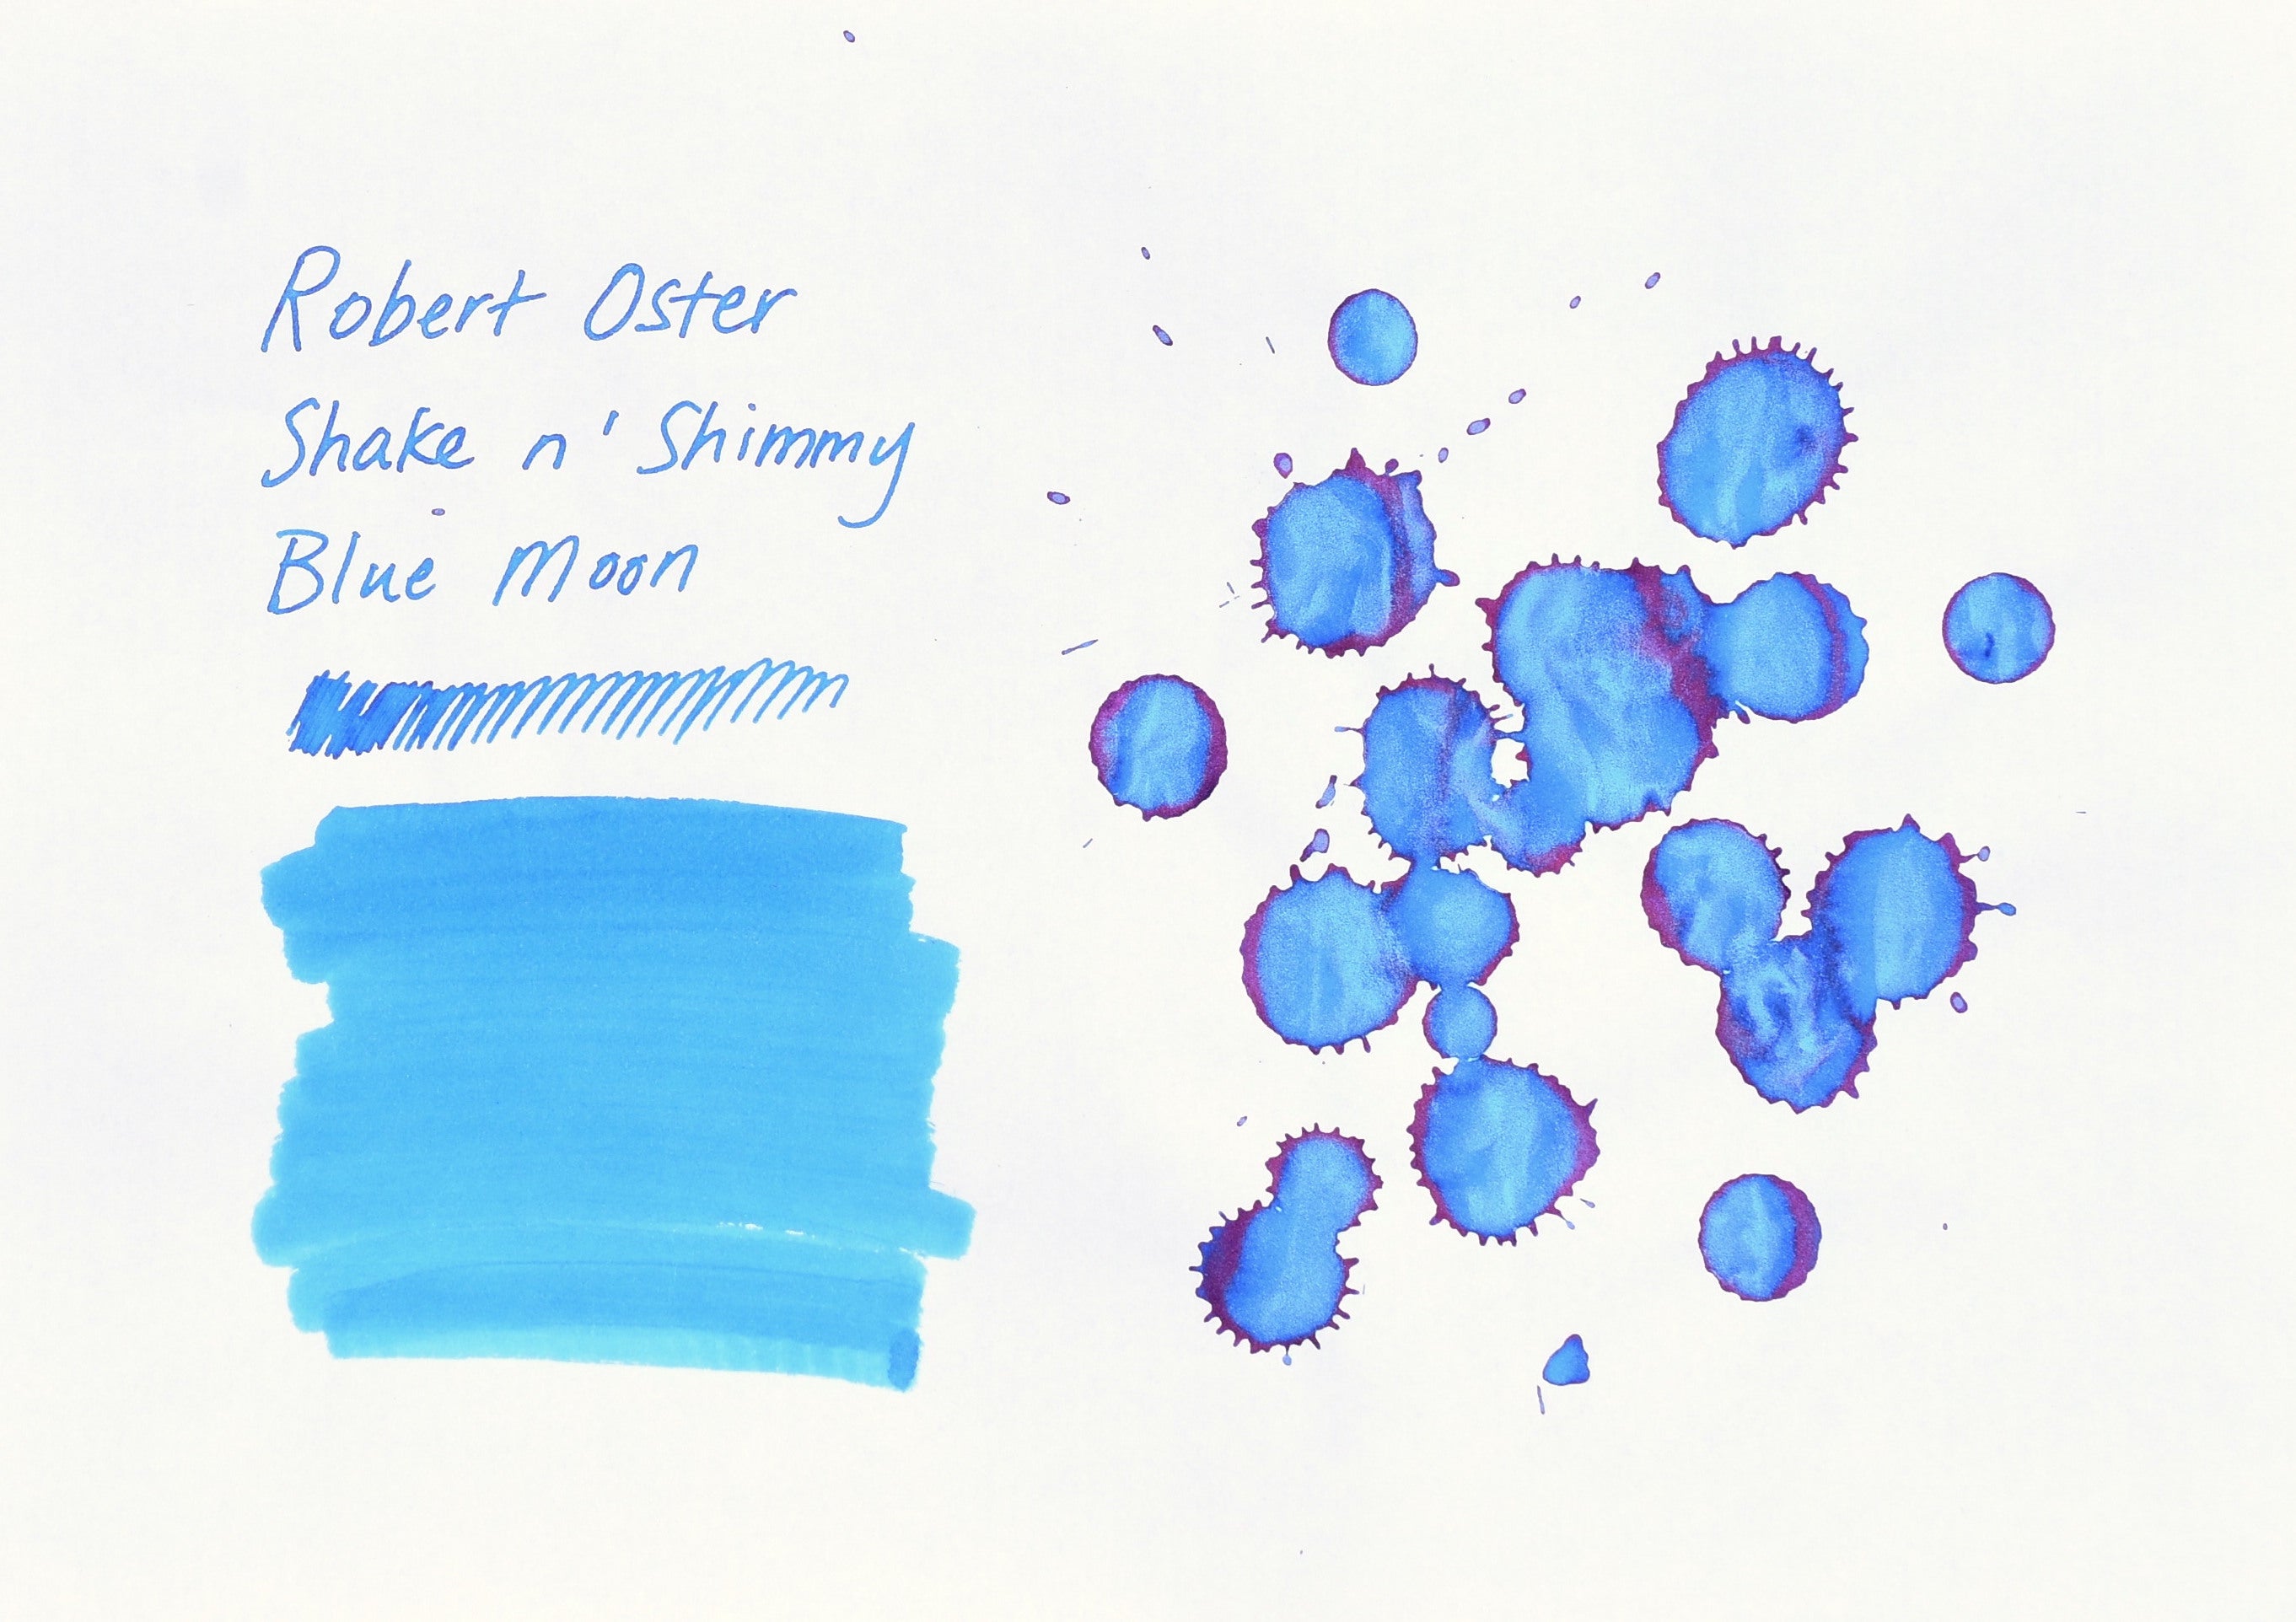 Robert Oster
Shake n' Shimmy
Blue Moon